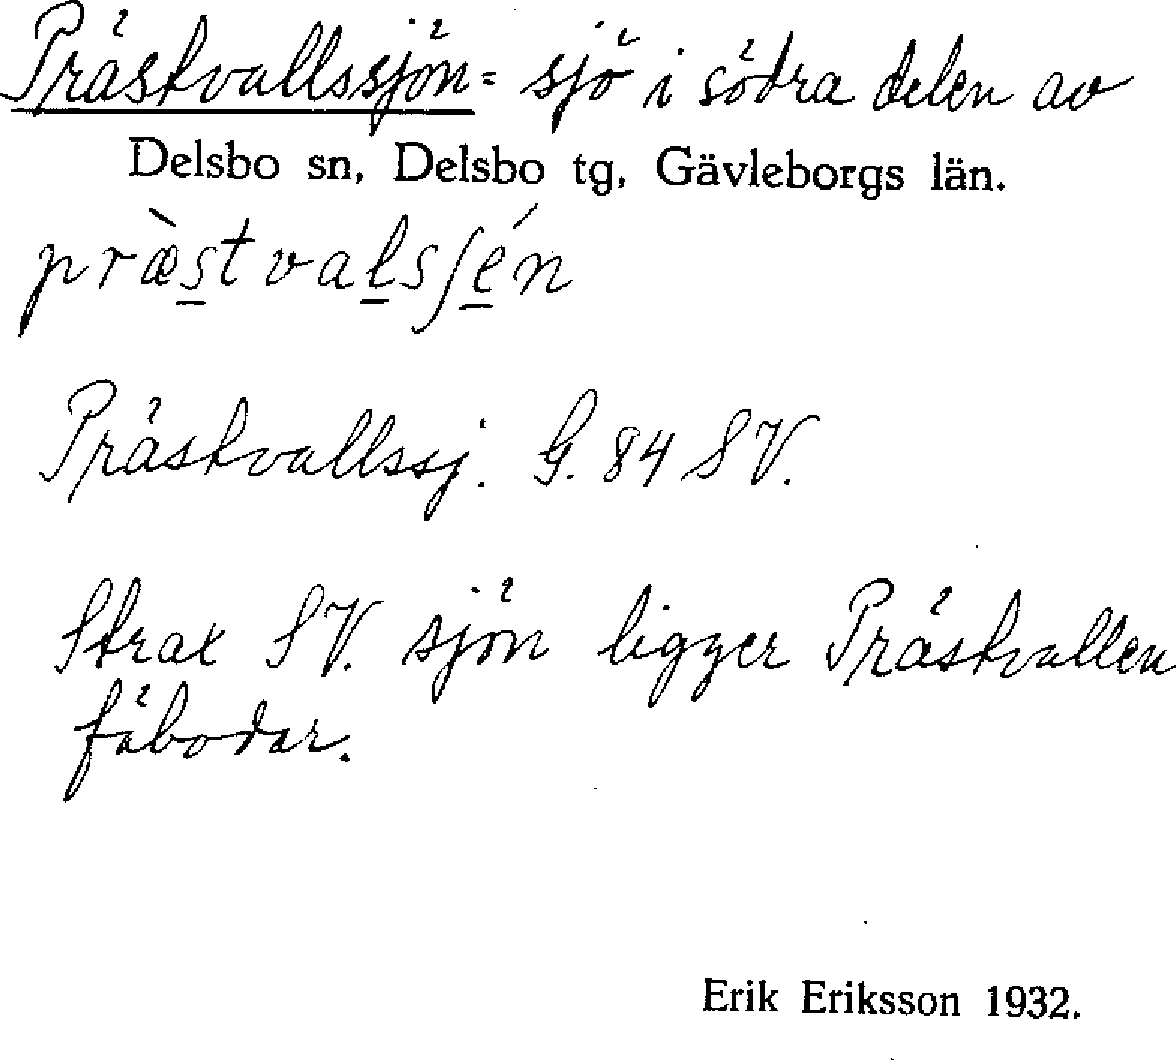 Prästvallssjön = sjö i södra delen av
Delsbo sn, Delsbo tg, Gävleborgs län.
præ̀s̲tval̲sʃé̲n
Prästvallssj. G. 84 SV.
Strax SV. sjön ligger Prästvallen
fäbodar.
Erik Eriksson 1932.